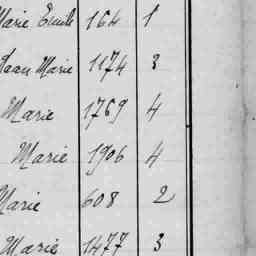 Marie Emile 164 1
Jean Marie 1174 3
Marie 1769 4
Marie 1906 4
Marie 608 2
Marie 1477 3